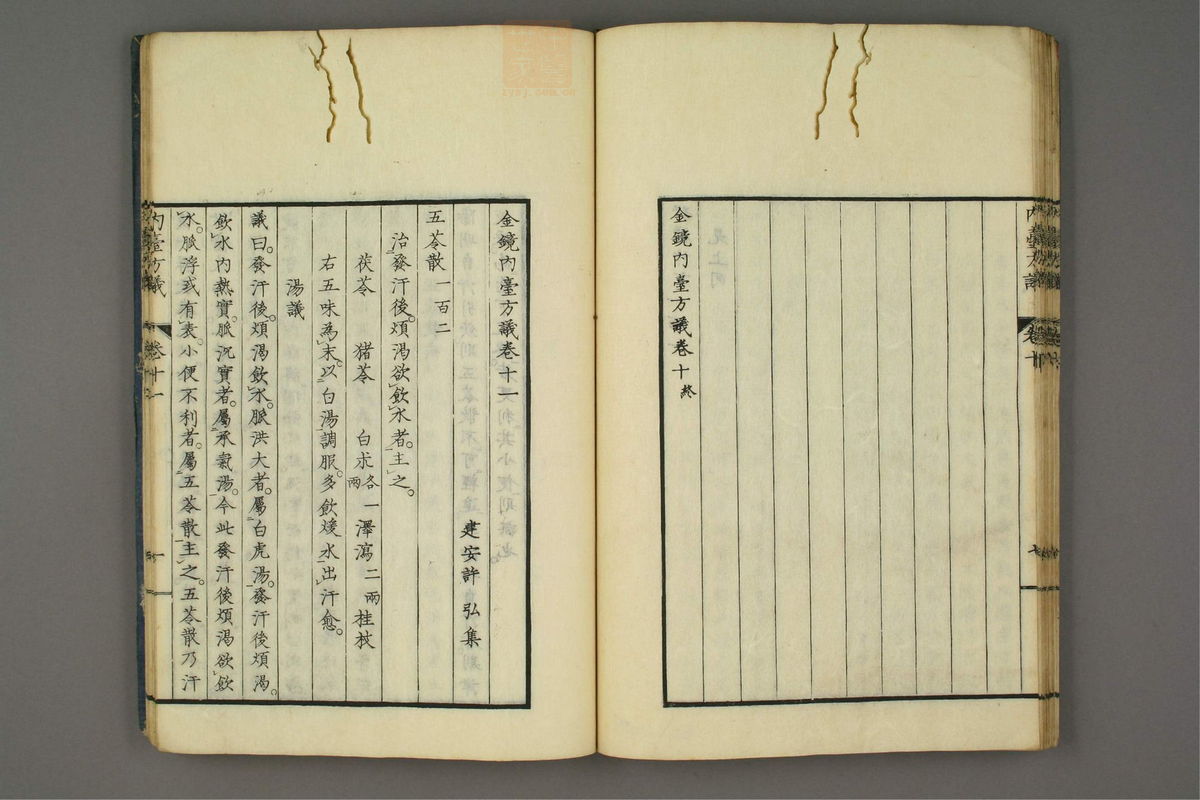 金鏡內臺方議卷十終
內臺方議 卷十
金鏡內臺方議卷十一
建安許弘集
五苓散一百二
治發汗後。煩渴欲飲水者。主之。
茯苓 猪苓 白朮各一兩 澤瀉二兩 桂枝
右五味為末。以白湯調服。多飲煖水出汗愈。
湯議
議曰。發汗後。煩渴飲水。脈洪大者。屬白虎湯。發汗後煩渴。
飲水內熱實。脈沉實者。屬承氣湯。今此發汗後煩渴欲飲
水。脈浮或有表。小便不利者。屬五苓散主之。五苓散乃汗
內臺方議 卷十一 一